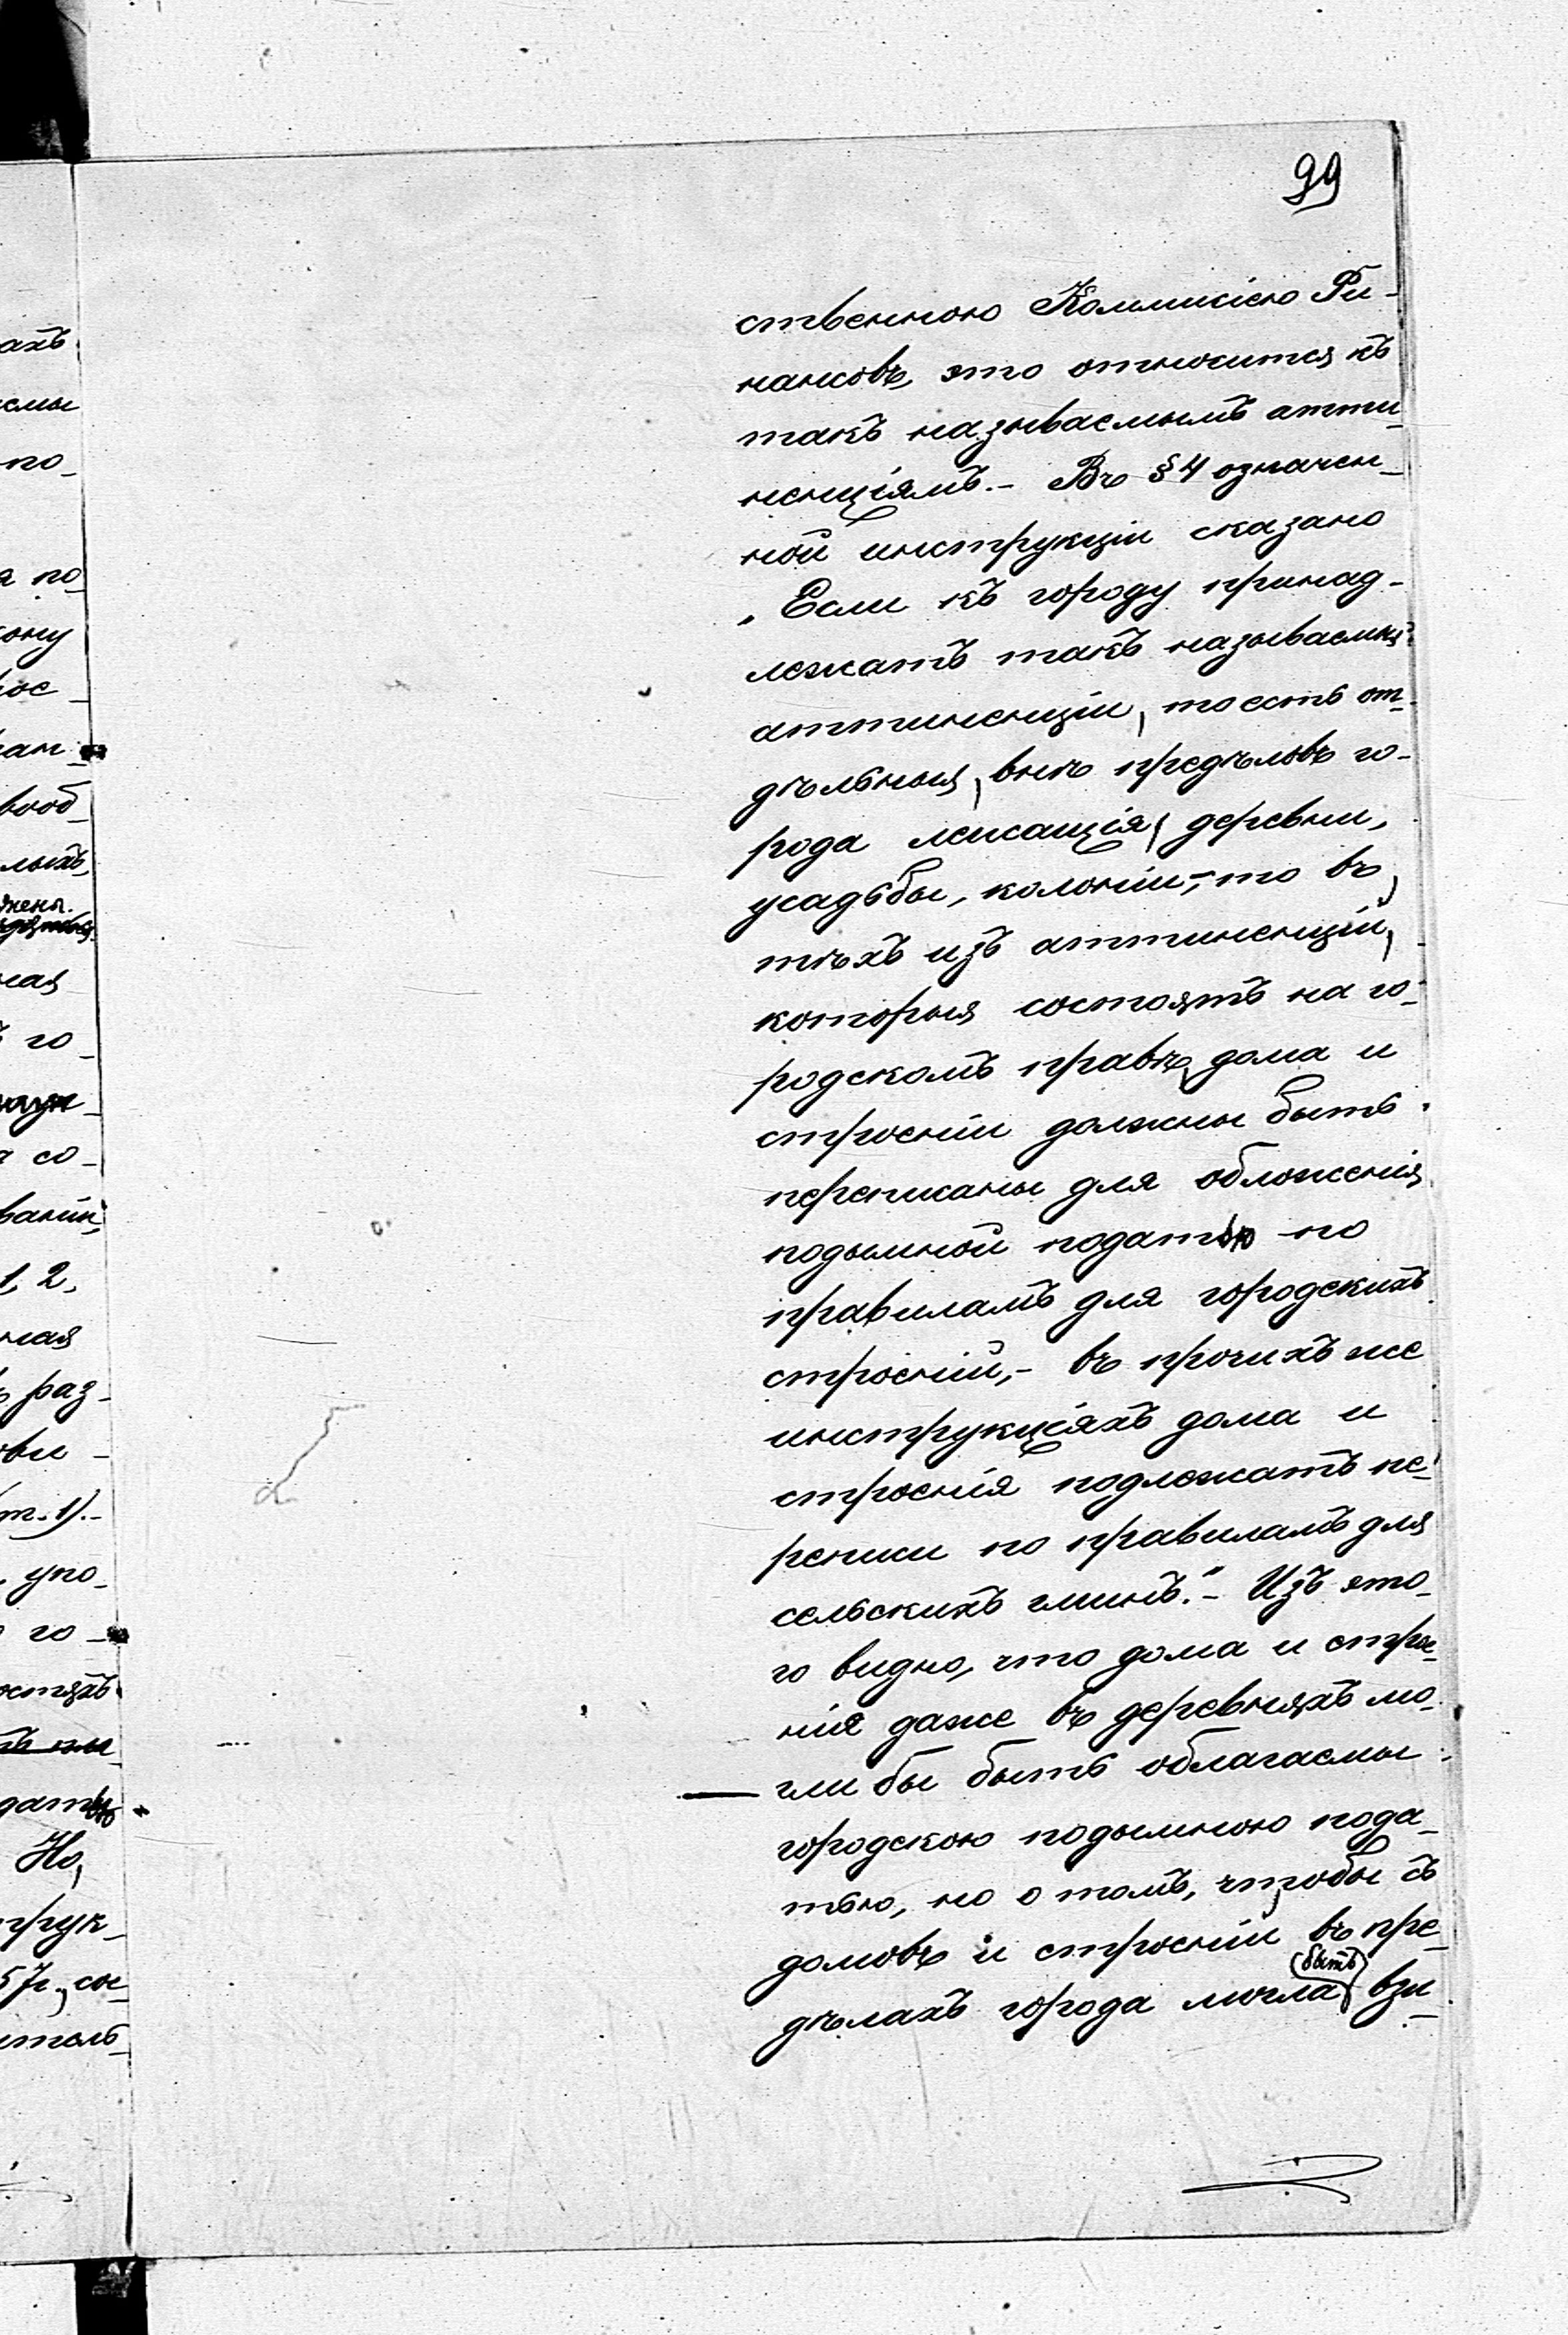 99
ственною Коммисіею Фи-
нансовъ, это относится къ
такъ называемымъ атти-
ненціямъ.- Въ §4 означен-
ной инструкціи сказано
„Если къ городу принад-
лежатъ такъ называемыя
аттиненціи, то есть от-
дѣльныя, внѣ предѣловъ го-
рода лежащія, деревни,
усадьбы, колоніи,- то въ
тѣхъ изъ аттиненцій,
которыя состоятъ на го-
родскомъ правѣ, дома и
строеніи должны быть
переписаны для обложенія
подымной податью по
правиламъ для городскихъ
строеній,- въ прочихъ же
инструкціяхъ дома и
строенія подлежатъ пе-
реписи по правиламъ для
сельскихъ гминъ."- Изъ это-
го видно, что дома и строе-
нія даже въ деревняхъ мо-
гли бы быть облагаемы
городскою подымною пода-
тью, но о томъ, чтобы съ
домовъ и строеніи въ пре-
(быть)
дѣлахъ города могла взи-
ахъ
емы
по-
я по-
кону
вооб-
лыхъ,
жены.
ная
го-
а со-
ваній
1, 2,
ная
раз-
ови-
(т. 1).-
упо-
го-
остяхъ
датью
Но,
трук-
57г., сос-
итель-